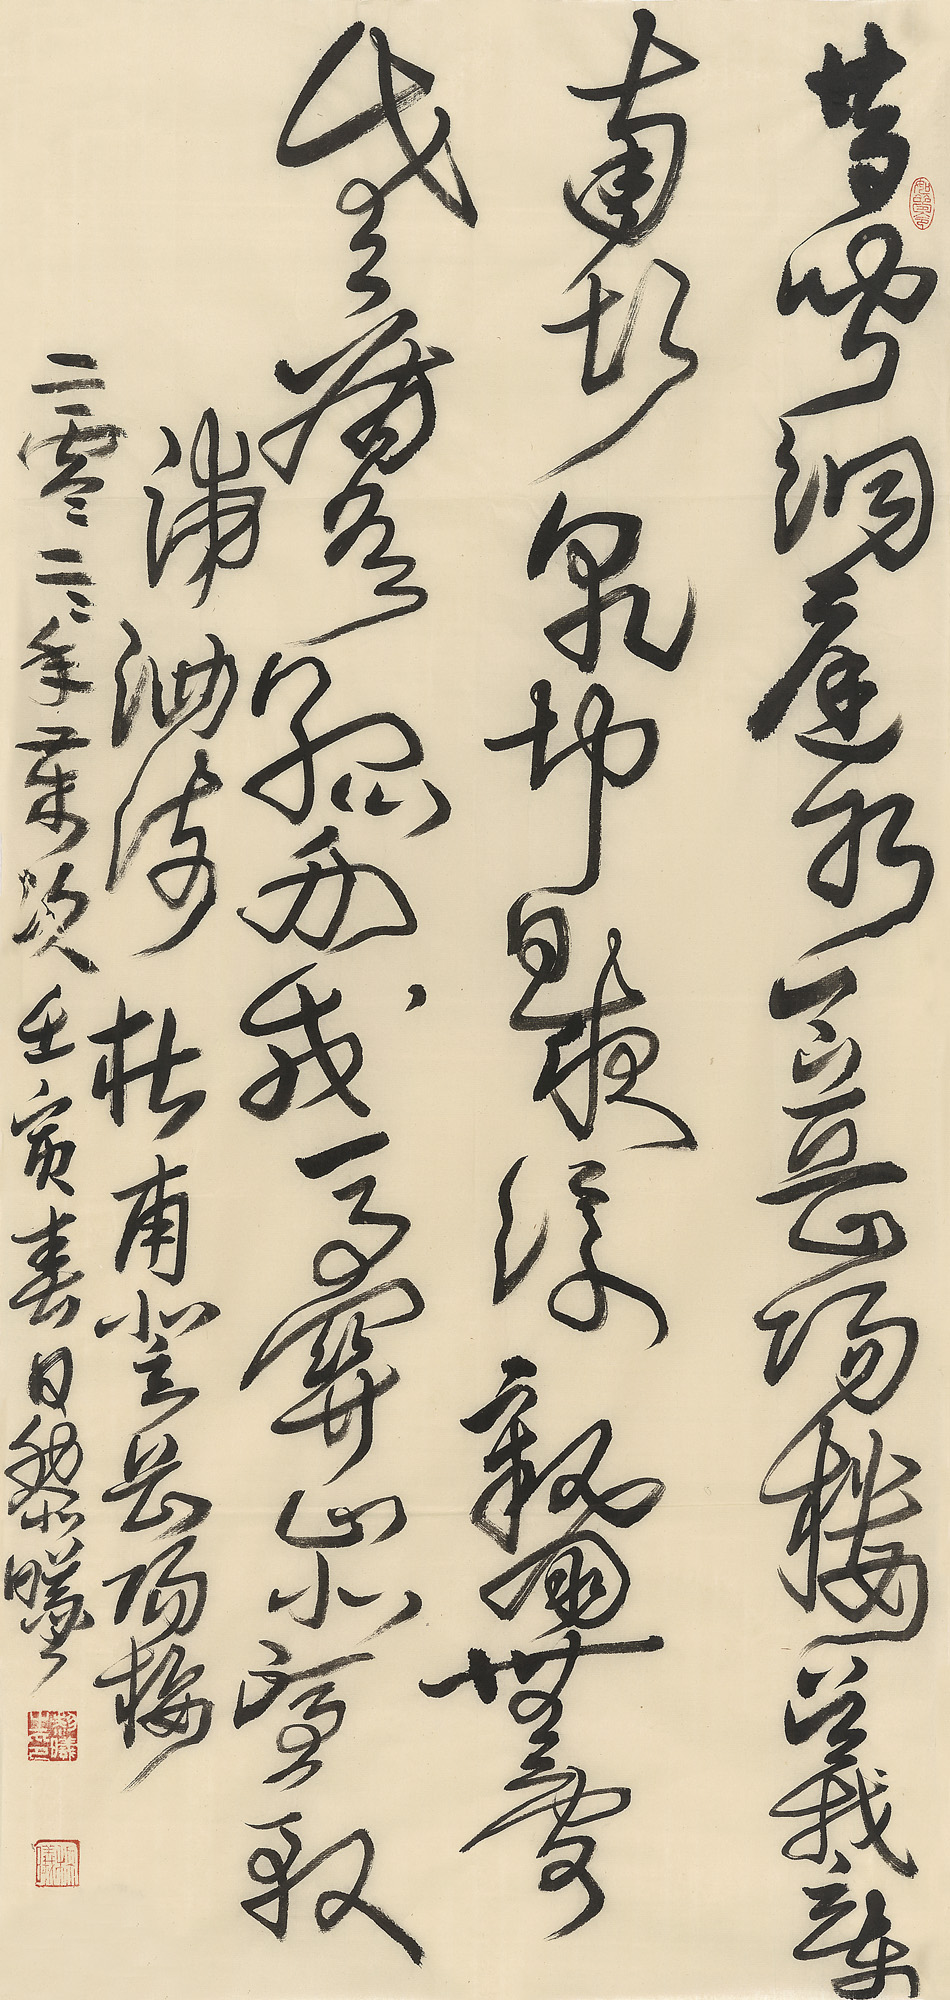 昔聞洞庭水今上岳陽樓吳楚東
南坼乾坤日夜浮親朋無一字
老病有孤舟戎馬關山北憑軒
涕泗流 杜甫登岳陽樓
二零二二年歲次壬寅春日黎曦